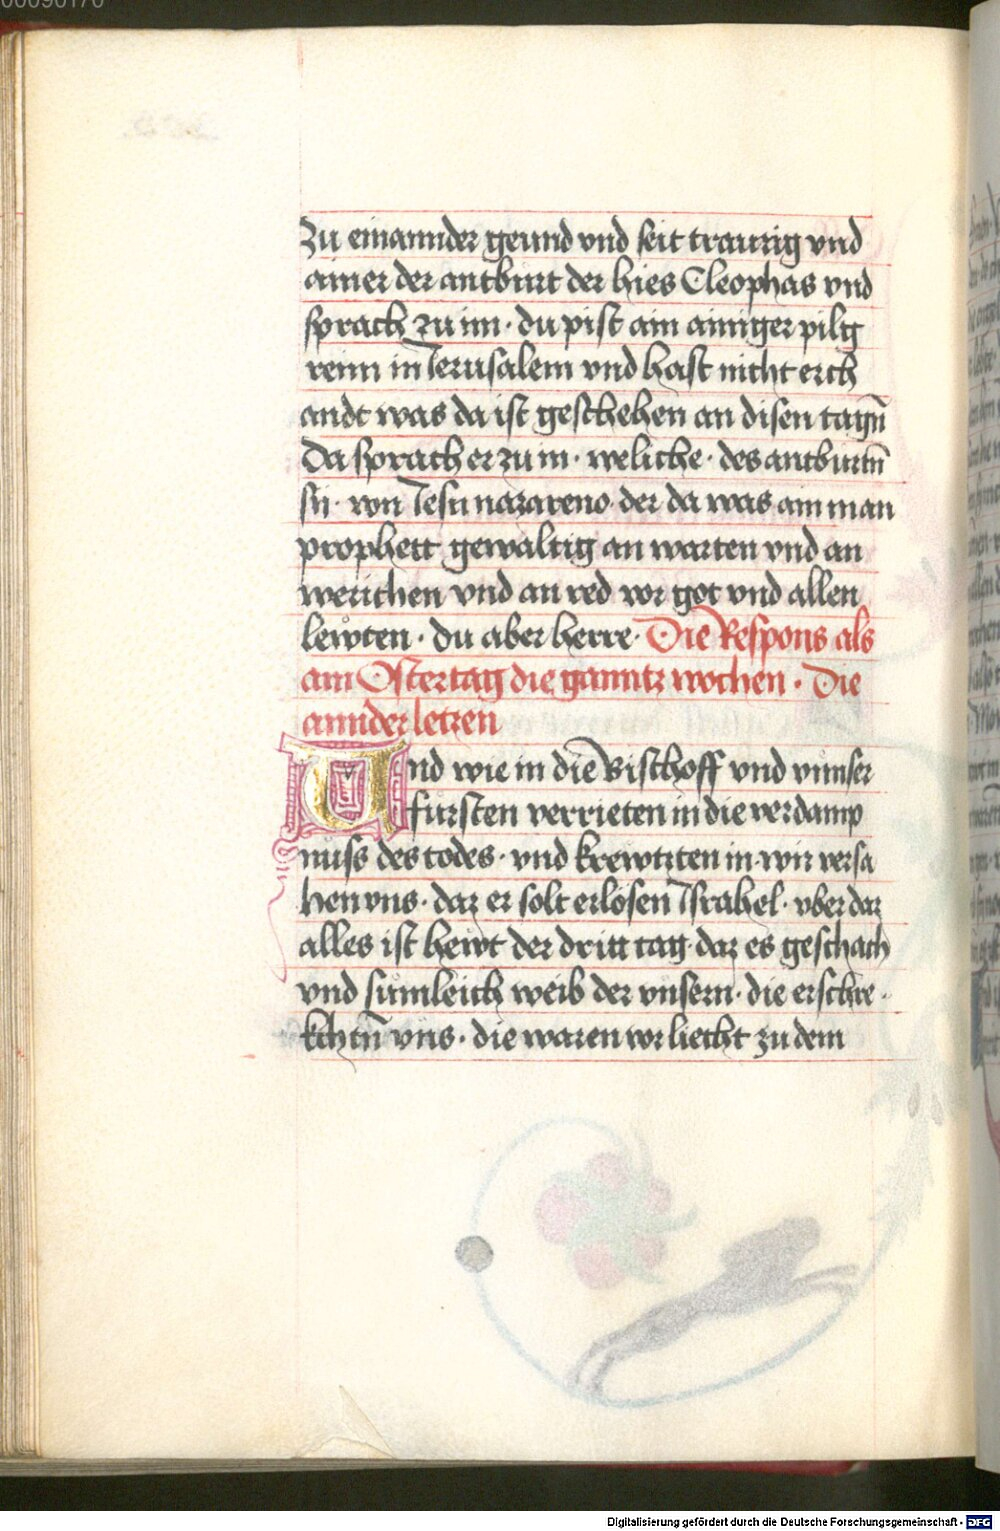 00090170
Zu einannder geund vnd seit traurig vnd
ainer der antburt der hies Cleophas vnd
sprach zu im · du pist ain ainiger pilg
reim in Jerusalem vnd hast nicht erch
andt was da ist geschehen an disen tagn̄
Da sprach er zu in · weliche · des antburtn̄
sy · von Jesu nazareno der da was ain man
prophett gewaltig an warten vnd an
werichen vnd an red vor got vnd allen
lewten · du aber herre · Die Respons als
am Ostertag die ganntz wochen · Die
annder letzen
Und wie in die Bischoff vnd vnnser
fursten verrieten in die verdamp
nuss des todes · vnd krewtzten in wir versa
hen vns · daz er solt erlosen Israhel · vber daz
alles ist hewt der dritt tag daz es geschach
vnd sumleich weib der vnsern · die erschre ·
kchtn̄ vns · die waren vor liecht zu dem
Digitalisierung gefördert durch die Deutsche Forschungsgemeinschaft - DFG